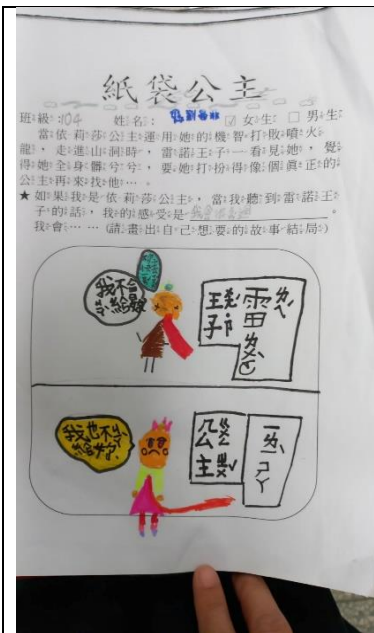 紙袋公主
班級：104 姓名： ☑女生 □男生
當依莉莎公主運用她的機智打敗噴火
龍，走進山洞時，雷諾王子一看見她，覺
得她全身髒兮兮，要她打扮得像個真正的
公主再來找他…。
★如果我是依莉莎公主，當我聽到雷諾王
子的話，我的感受是 。
我會……(請畫出自己想要的故事結局)
我不會
給
王子
雷
我也不
給妳
公主